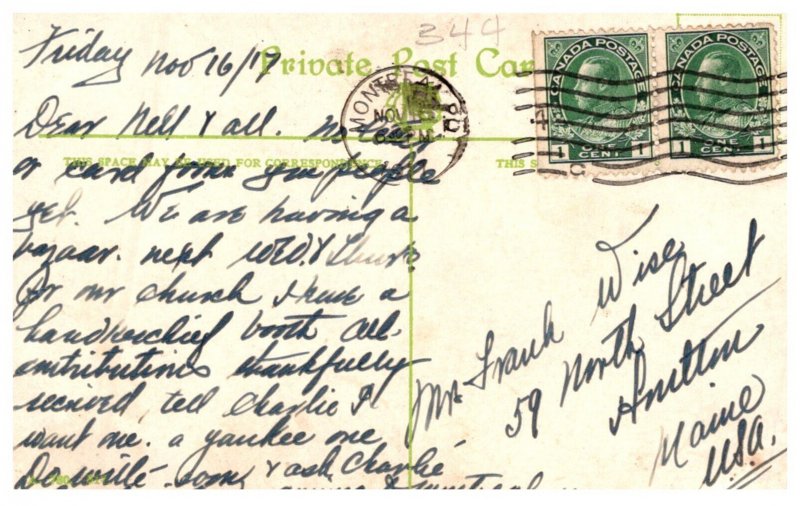 344
Private Post Car
Friday Nov 16/17
MONTREAL P.Q.
NOV
CANADA POSTAGE
1 ONE CENT 1
CANADA POSTAGE
1 ONE CENT 1
THIS SPACE MAY BE USED FOR CORRESPONDENCE
THIS S
Dear Nell & all. no letter
or card from you people
yet. We are having a
bazaar. next WED. & Thurs
for our church I have a
handkerchief booth All
contributions thankfully
received, tell Charlie I
want one. a yankee one
Do write soon & ask Charlie
Mr. Frank Wise
59 North Street
Maine
U.S.A.